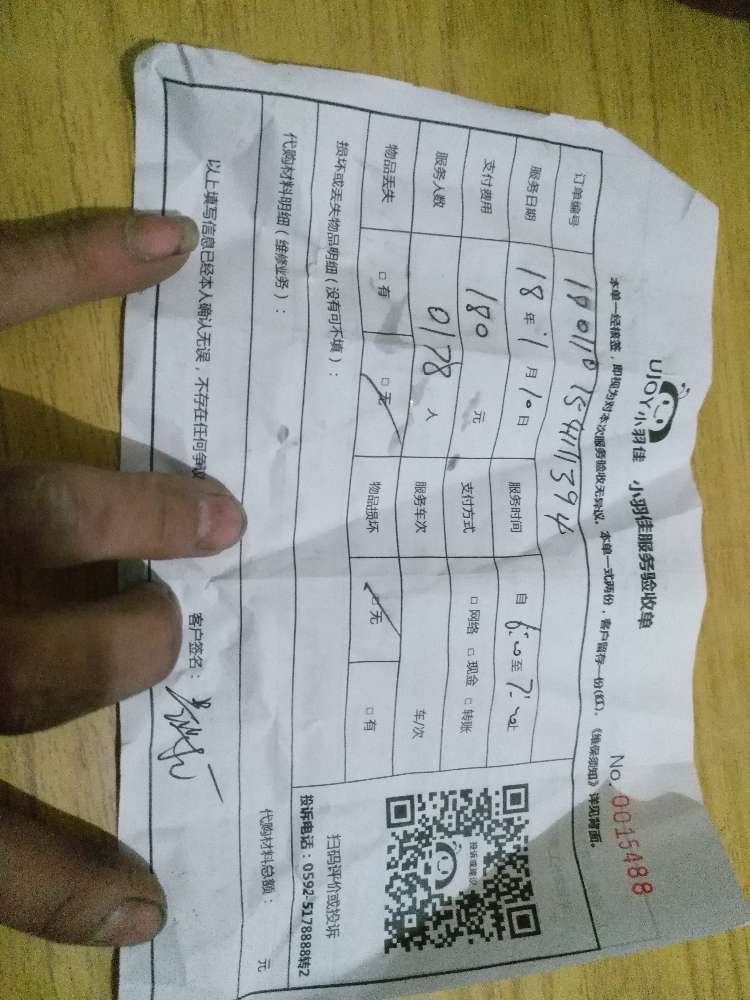 UJOY小羽佳 小羽佳服务验收单 No. 0015488
本单一经核签，即视为对本次服务验收无异议。本单一式两份，客户留存一份(红)。《维保须知》详见背面。
订单编号
服务日期 18年1月10日 服务时间 自 至 止
支付费用 180 元 支付方式 □网络 □现金 □转账
服务人数 0178 人 服务车次 车/次
物品丢失 □有 □无 物品损坏 □无 □有
损坏或丢失物品明细（没有可不填）：
扫码评价或投诉
投诉电话：0592-5178888转2
代购材料明细（维修业务）：
代购材料总额： 元
以上填写信息已经本人确认无误，不存在任何争议
客户签名：